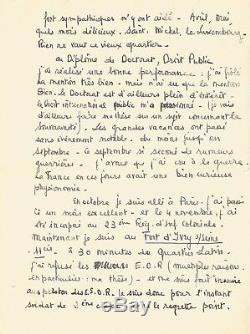 fort sympathiques m'ont aidé - Avril, Mai,
quels mois délicieux. Saint-Michel, le Luxembourg
Rien ne vaut ce vieux quartier.
au Diplôme de Doctorat, Droit Public
j'ai réalisé une bonne performance. j'ai frôlé
la mention très bien - mais n'ai eu que la mention
Bien. Le Doctorat est d'ailleurs plein d'intérêt -
le droit international public m'a passionné (je vais
d'ailleurs faire ma thèse sur un sujet concernant la
souveraineté). Les grandes vacances ont passé
sans événement notable. du moins jusqu'en
septembre - septembre si fécond de rumeurs
guerrières ! j'avoue que j'ai cru à la guerre.
La France en ces jours avait une bien curieuse
physionomie.
En octobre je suis allé à Paris - j'ai passé
un mois excellent - et le 4 novembre, j'ai
été incorporé au 23ème Rég. d'Inf. Coloniale
Maintenant je suis au Fort d'Ivry s/Seine
à 30 minutes du Quartier Latin.
j'ai refusé les E.O.R (multiples raisons
en particulier : ma thèse) - et me suis fait
au peloton des E.S.O.R. Je suis donc pour l'instant
soldat de 2ème